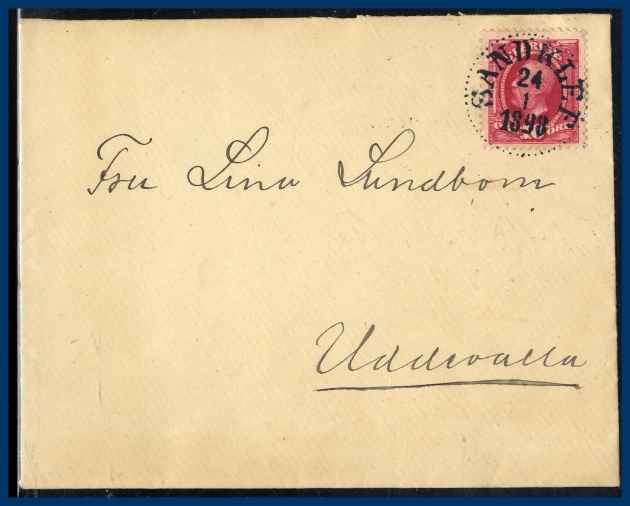 SANDKLEF
24
1
1898
Fru Lina Lundbom
Uddevalla